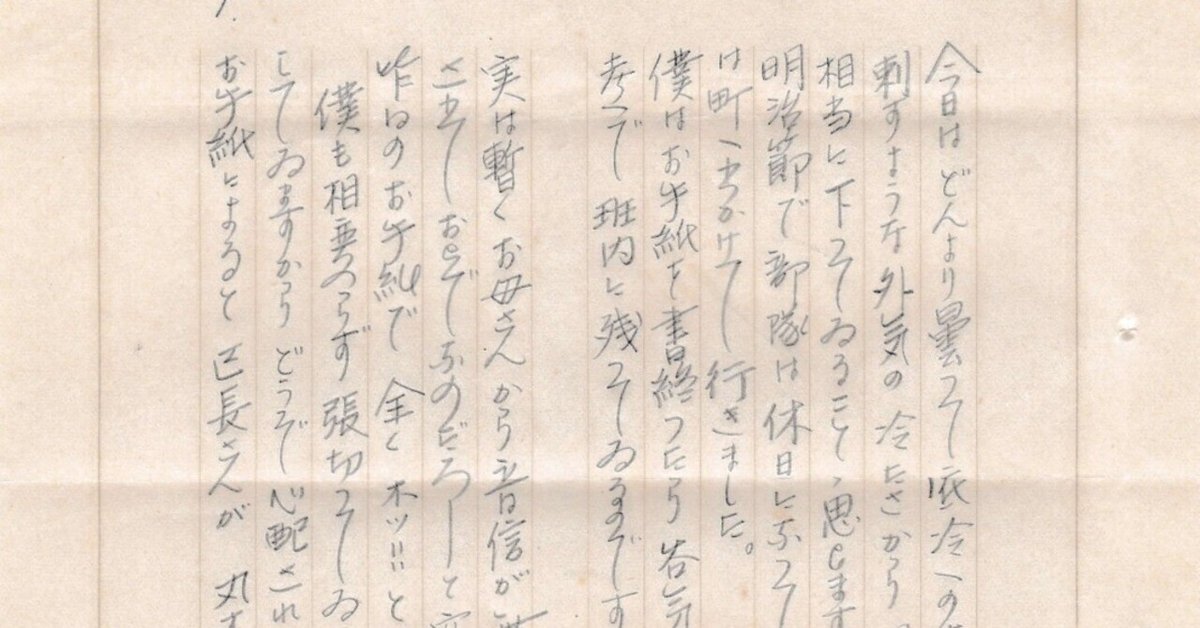 今日はどんより曇つて底冷への
刺すような外気の冷たさから
相当に下つてゐることゝ思ひます
明治節で部隊は休日になつて
は町へ出かけて行きました。
僕はお手紙を書終つたら
考へで 班内に残つてゐるのです
実は暫くお母さんから音信が
なのだろーと
昨日のお手紙で 全くホッ!!と
僕も相変らず張切つてゐ
してゐますから どうぞ心配され
お手紙によると 区長さんが